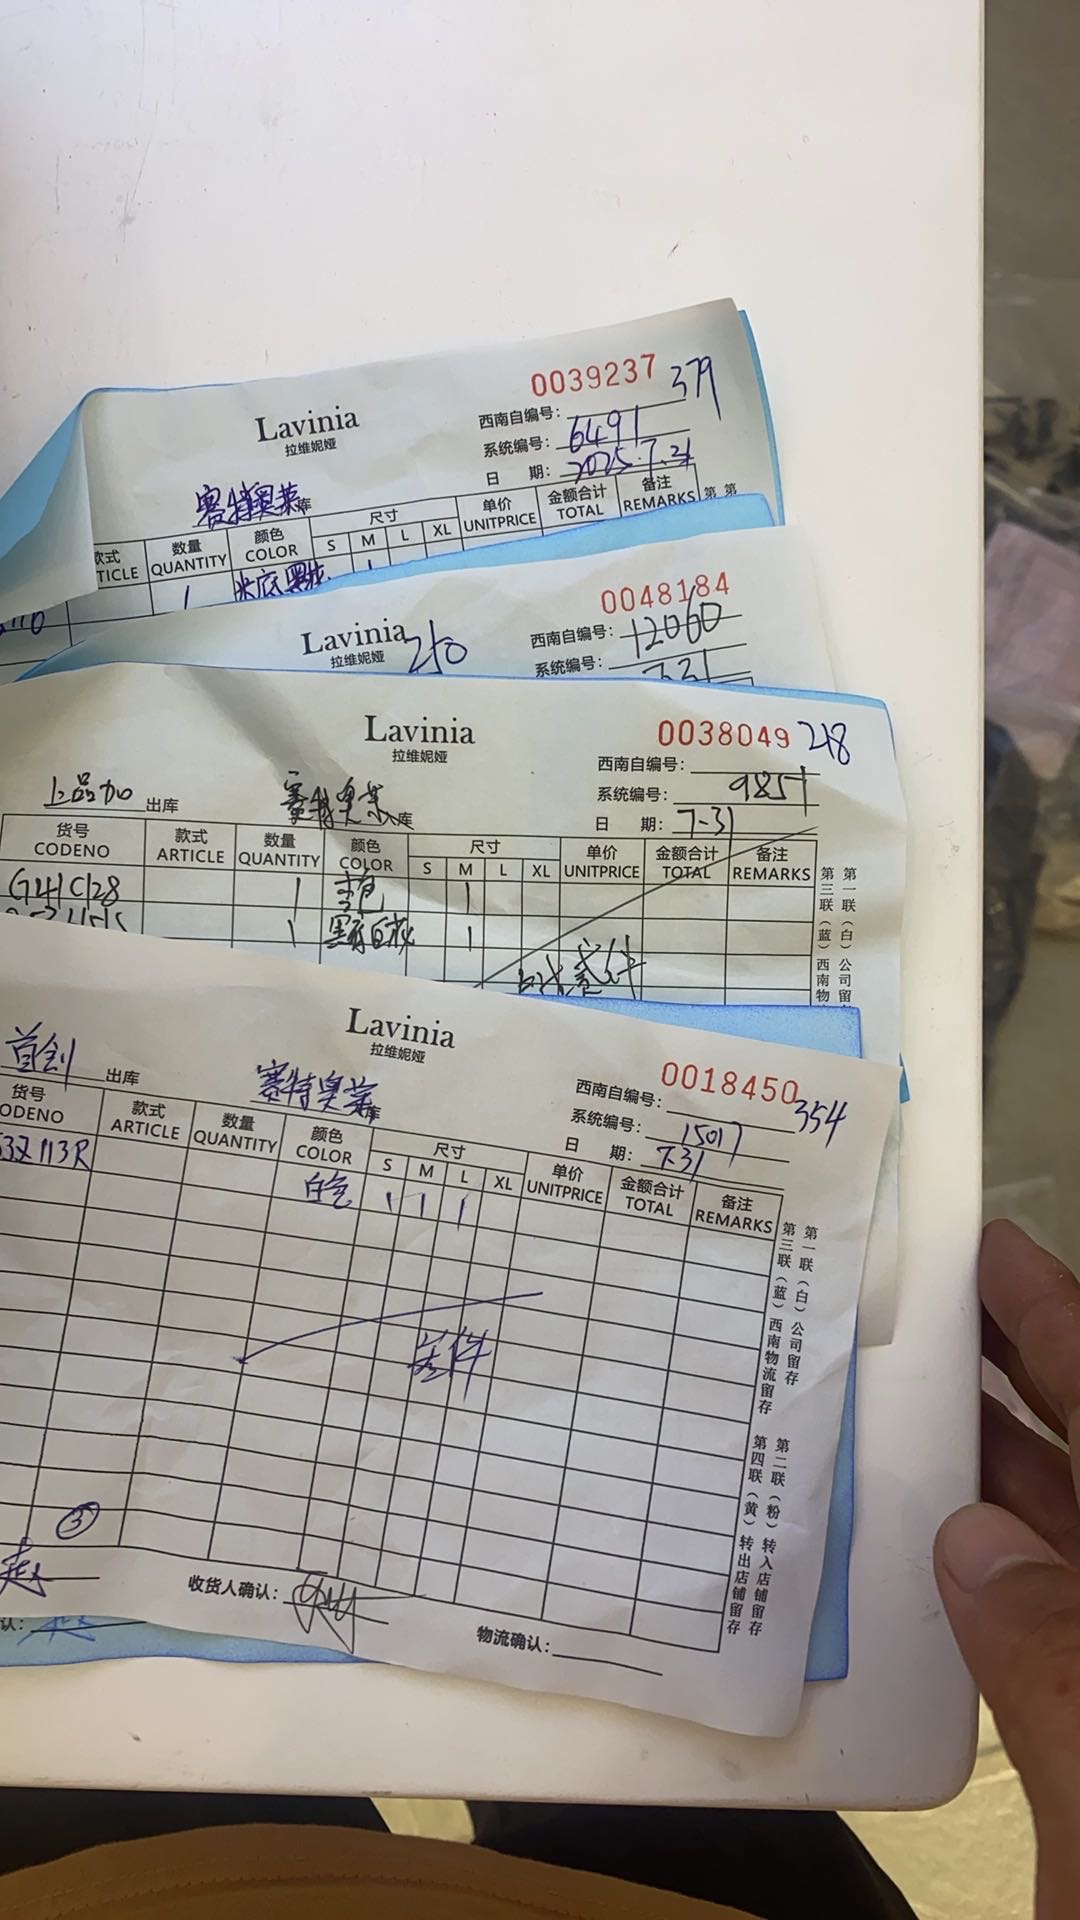 0039237 379
Lavinia
拉维妮娅
西南自编号：
系统编号：6491
日 期：2025.7.31
赛特奥莱库
款式 数量 颜色 尺寸 单价 金额合计 备注
TICLE QUANTITY COLOR S M L XL UNITPRICE TOTAL REMARKS
第 第
1 米底黑花 1
0048184
Lavinia 210
拉维妮娅
西南自编号：12060
系统编号：7.31
0038049 218
Lavinia
拉维妮娅
西南自编号：
系统编号：9851
日 期：7-31
上品加 出库 赛特奥莱库
货号 款式 数量 颜色 尺寸 单价 金额合计 备注
CODENO ARTICLE QUANTITY COLOR S M L XL UNITPRICE TOTAL REMARKS
G41C128 1 1
1 黑底白花 1
第一联（白）公司留
第三联（蓝）西南物
0018450 354
Lavinia
拉维妮娅
西南自编号：
系统编号：15017
日 期：7.31
首创 出库 赛特奥莱库
货号 款式 数量 颜色 尺寸 单价 金额合计 备注
ODENO ARTICLE QUANTITY COLOR S M L XL UNITPRICE TOTAL REMARKS
53Z113R 白色 1 1 1
差件
③
第一联（白）公司留存
第三联（蓝）西南物流留存
第二联（粉）转入店铺留存
第四联（黄）转出店铺留存
赵 收货人确认： 物流确认：
认：